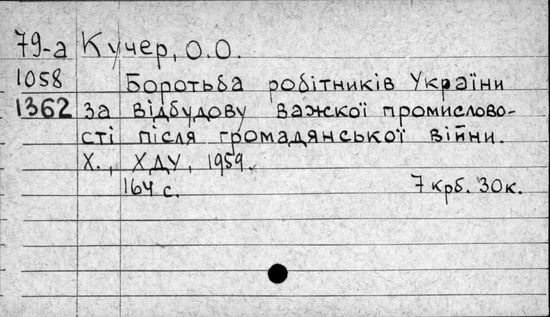 79-а Кучер, О.О.
1058 Боротьба робітників України
1362 за відбудову важкої промислово-
сті після громадянської війни.
Х., ХДУ, 1959.
164 с. 7 крб. 30к.